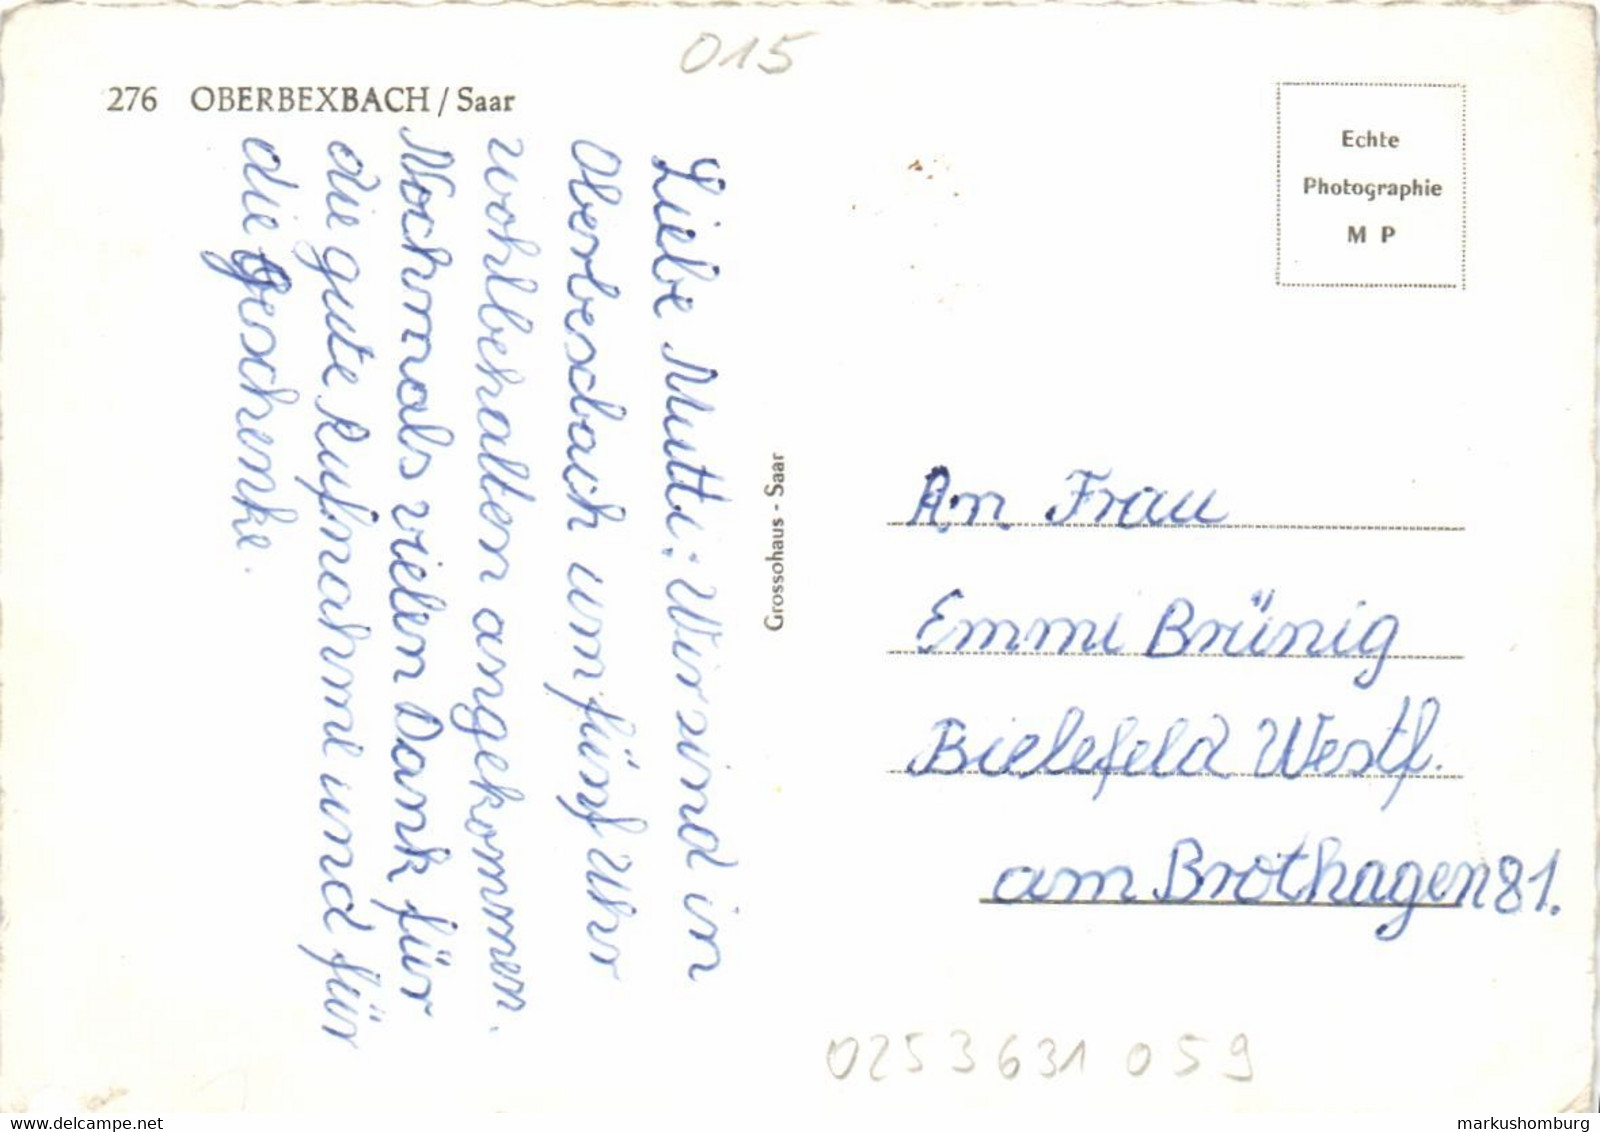 015
276 OBERBEXBACH / Saar
Liebe Mutti: Wir sind in
Oberbexbach um fünf Uhr
wohlbehalten angekommen.
Nochmals vielen Dank für
die gute Aufnahme und für
die Geschenke.
Grossohaus - Saar
Echte
Photographie
M P
An Frau
Emmi Brünig
Bielefeld Westf.
am Brothagen 81.
0253631 059
delcampe.net
markushomburg